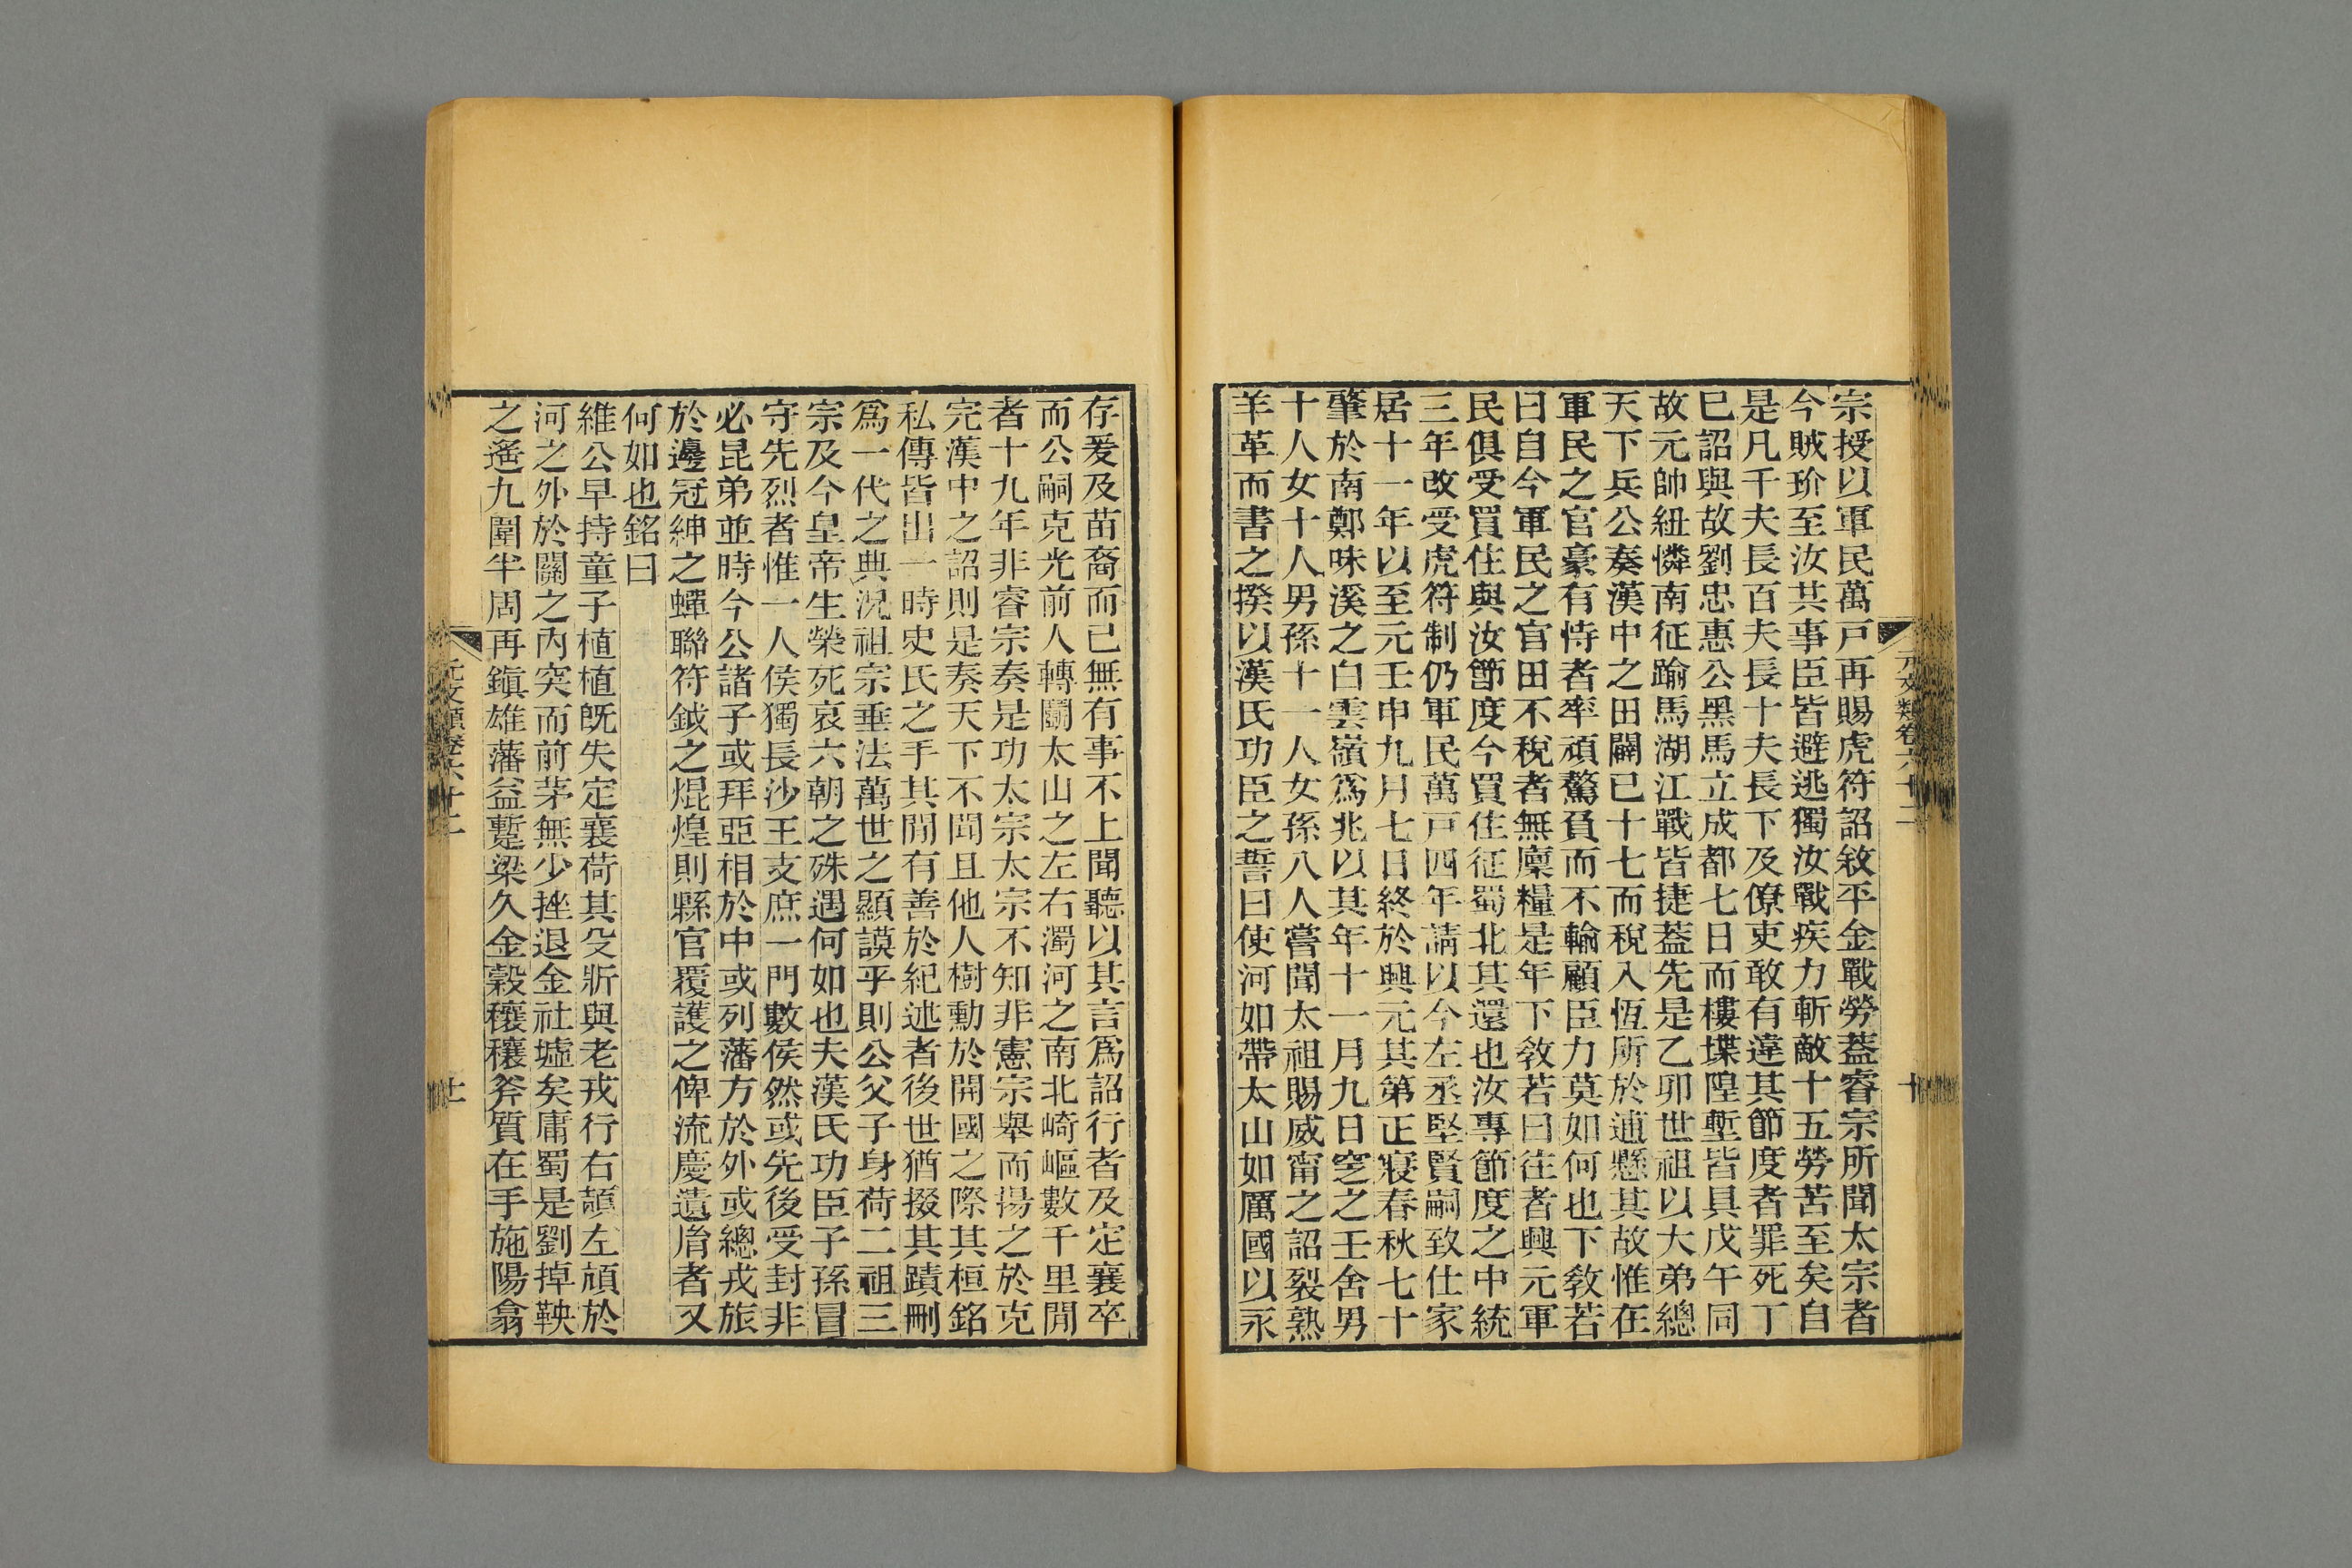 元文類卷六十二
十
宗授以軍民萬戸再賜虎符詔敘平金戰勞葢睿宗所聞太宗者
今賊玠至汝共事臣皆避逃獨汝戰疾力斬敵十五勞苦至矣自
是凡千夫長百夫長十夫長下及僚吏敢有違其節度者罪死丁
巳詔與故劉忠惠公黑馬立成都七日而樓堞隍塹皆具戊午同
故元帥紐憐南征踰馬湖江戰皆捷葢先是乙卯世祖以大弟總
天下兵公奏漢中之田闢已十七而稅入恆所於逋懸其故惟在
軍民之官豪有恃者率頑驁負而不輸顧臣力莫如何也下敎若
曰自今軍民之官田不稅者無廩糧是年下敎若曰往者興元軍
民俱受買住與汝節度今買住征蜀北其還也汝專節度之中統
三年改受虎符制仍軍民萬戸四年請以今左丞堅賢嗣致仕家
居十一年以至元壬申九月七日終於興元其第正寢春秋七十
肇於南鄭味溪之白雲嶺爲兆以其年十一月九日窆之王舍男
十人女十人男孫十一人女孫八人嘗聞太祖賜威甯之詔裂熟
羊革而書之揆以漢氏功臣之誓曰使河如帶太山如厲國以永
存爰及苗裔而已無有事不上聞聽以其言爲詔行者及定襄卒
而公嗣克光前人轉鬭太山之左右濁河之南北崎嶇數千里閒
者十九年非睿宗奏是功太宗太宗不知非憲宗舉而揚之於克
完漢中之詔則是奏天下不聞且他人樹勳於開國之際其桓銘
私傳皆出一時史氏之手其閒有善於紀述者後世猶掇其蹟刪
爲一代之典況祖宗垂法萬世之顯謨乎則公父子身荷二祖三
宗及今皇帝生榮死哀六朝之殊遇何如也夫漢氏功臣子孫冒
守先烈者惟一人侯獨長沙王支庶一門數侯然或先後受封非
必昆弟並時今公諸子或拜亞相於中或列藩方於外或總戎旅
於邊冠紳之蟬聯符鉞之焜煌則縣官覆護之俾流慶遺胄者又
何如也銘曰
維公早持童子植植旣失定襄荷其殳斨與老戎行右頡左頏於
河之外於關之內突而前茅無少挫退金社墟矣庸蜀是劉掉鞅
之遙九圍半周再鎭雄藩益蹔梁久金穀穰穰斧質在手施陽翕
元文類卷六十二
十一